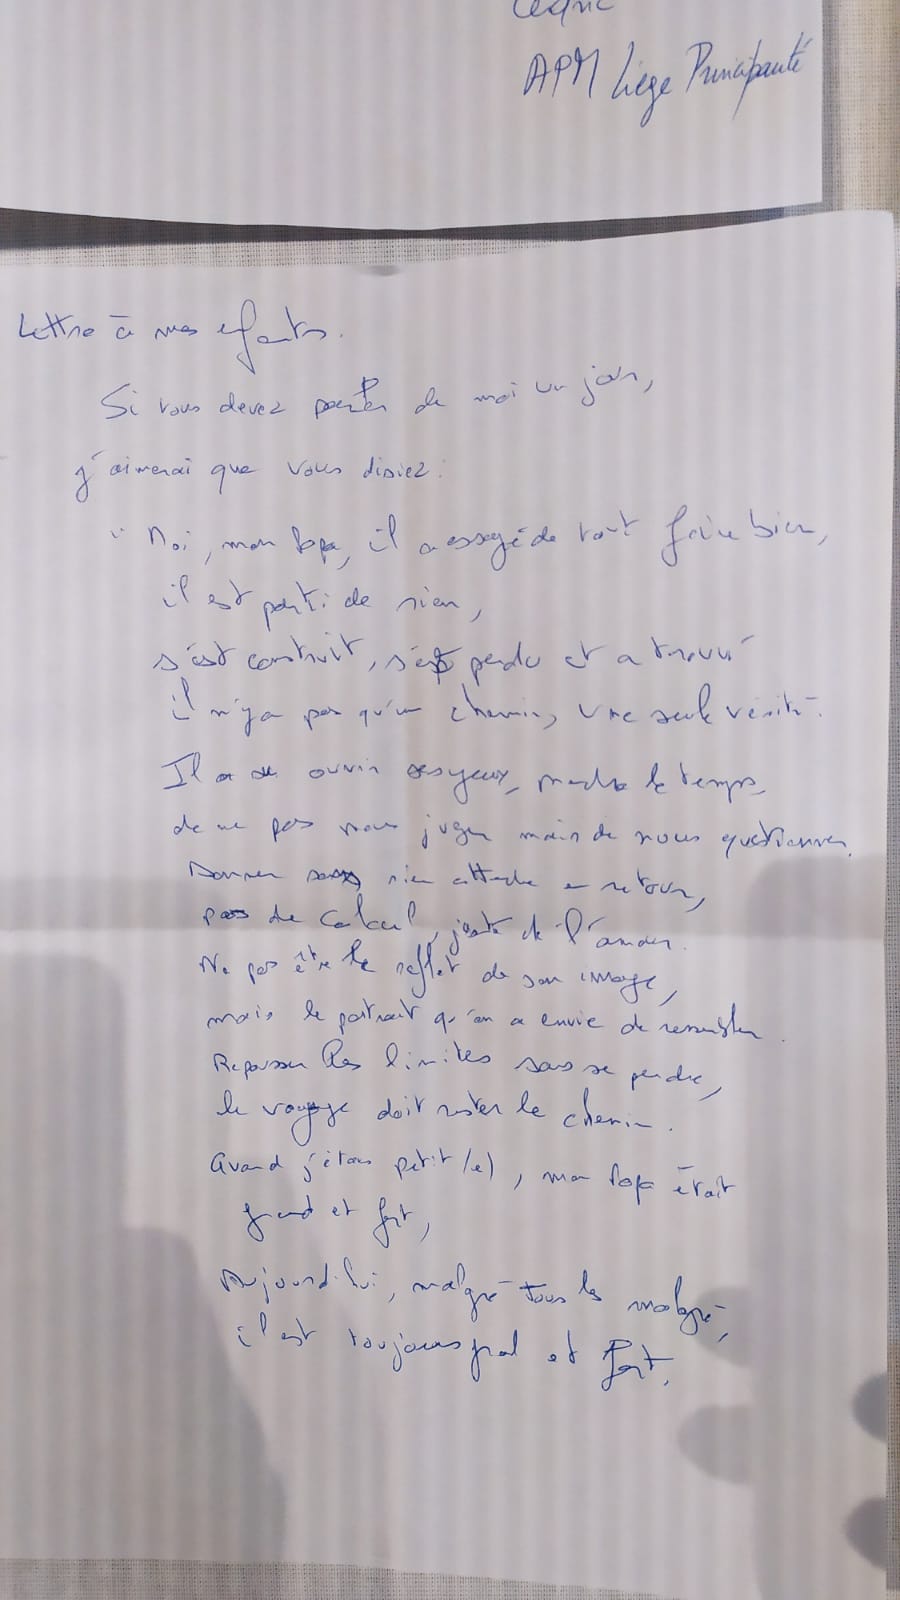 Cédric
APM Liège Principauté
Lettre à mes enfants.
Si vous devez parler de moi un jour,
j'aimerai que vous disiez :
" Moi, mon Papa, il a essayé de tout faire bien,
il est parti de rien,
s'est construit, s'est perdu et a trouvé
il n'y a pas qu'un chemin, une seule vérité.
Il a ouvrir yeux, prendre le temps,
de ne pas nous juger mais de nous questionner.
Donner sans rien attendre en retour,
pas de calcul, juste de l'amour.
Ne pas être le reflet de son image,
mais le portrait qu'on a envie de ressembler.
Repousser les limites sans se perdre,
le voyage doit rester le chemin.
Quand j'étais petit(e), mon Papa était
grand et fort,
Aujourd'hui, malgré tous les malgré,
il est toujours grand et fort.